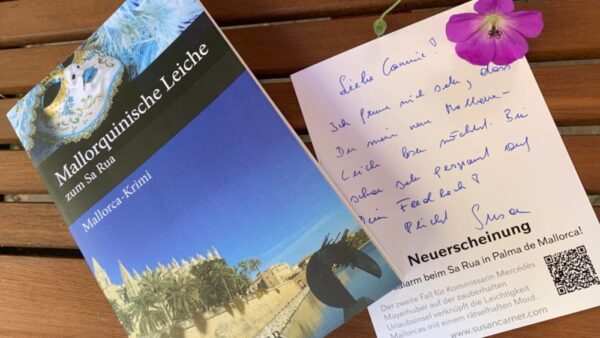 Mallorquinische Leiche
zum Sa Rua
Mallorca-Krimi
Liebe Connie!
Ich freue mich sehr, dass
Du meine neue Mallorca-
Leiche lesen möchtest. Bin
schon sehr gespannt auf
Dein Feedback!
Susan
Neuerscheinung
alarm beim Sa Rua in Palma de Mallorca!
Der zweite Fall für Kommissarin Mercédès
Mayerhuber auf der zauberhaften
Urlaubsinsel verknüpft die Leichtigkeit
Mallorcas mit einem rätselhaften Mord.
www.susancarner.com